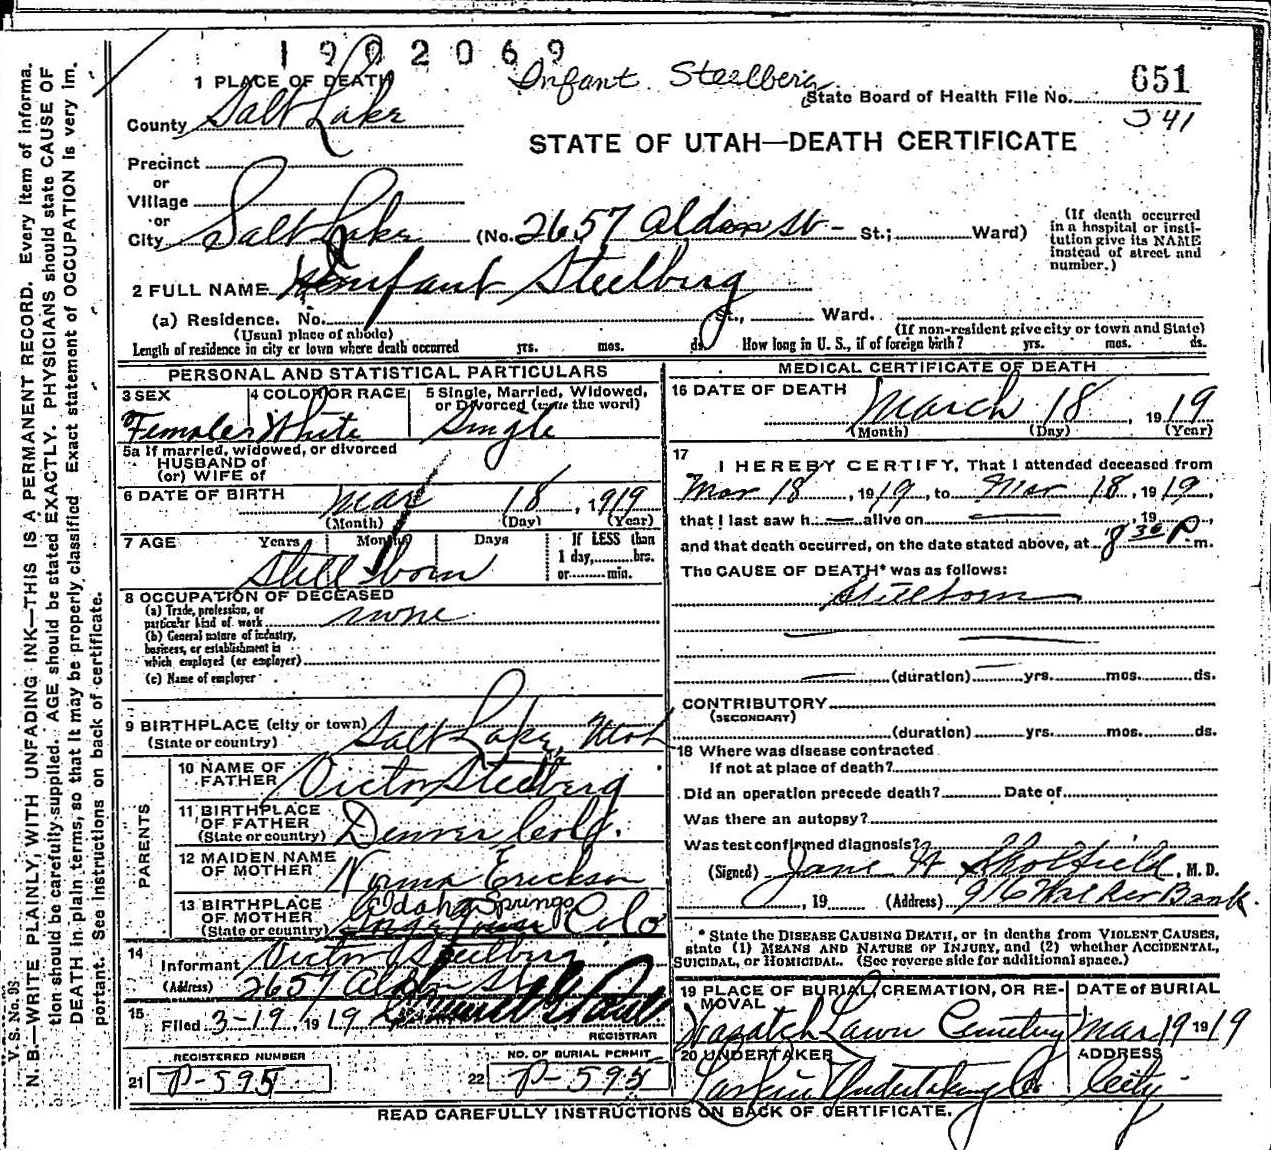 1902069
Infant Steelberg
651
State Board of Health File No.
J 41
1 PLACE OF DEATH
County Salt Lake
STATE OF UTAH—DEATH CERTIFICATE
Precinct
or
Village
or
City Salt Lake (No. 2657 Alden St - St.; Ward)
(If death occurred in a hospital or insti-
tution give its NAME
instead of street and
number.)
2 FULL NAME Infant Steelberg
(a) Residence. No. St., Ward.
(Usual place of abode) (If non-resident give city or town and State)
Length of residence in city or town where death occurred yrs. mos. ds. How long in U. S., if of foreign birth? yrs. mos. ds.
PERSONAL AND STATISTICAL PARTICULARS
3 SEX 4 COLOR OR RACE 5 Single, Married, Widowed,
or Divorced (write the word)
Female White Single
5a If married, widowed, or divorced
HUSBAND of
(or) WIFE of
6 DATE OF BIRTH Mar 18, 1919
(Month) (Day) (Year)
7 AGE Years Months Days If LESS than
1 day, hrs.
or min.
Stillborn
8 OCCUPATION OF DECEASED
(a) Trade, profession, or
particular kind of work none
(b) General nature of industry,
business, or establishment in
which employed (or employer)
(c) Name of employer
9 BIRTHPLACE (city or town) Salt Lake, Utah
(State or country)
PARENTS
10 NAME OF
FATHER Victor Steelberg
11 BIRTHPLACE
OF FATHER
(State or country) Denver Colo.
12 MAIDEN NAME
OF MOTHER Norma Erickson
13 BIRTHPLACE
OF MOTHER
(State or country) Idaho Springs Colo
14
Informant Victor Steelberg
(Address) 2657 Alden St
15
Filed 3-19, 1919
REGISTRAR
REGISTERED NUMBER
21 P-595
NO. OF BURIAL PERMIT
22 P-595
MEDICAL CERTIFICATE OF DEATH
16 DATE OF DEATH
March 18, 1919
(Month) (Day) (Year)
17
I HEREBY CERTIFY, That I attended deceased from
Mar 18, 1919, to Mar 18, 1919,
that I last saw h alive on , 19 ,
and that death occurred, on the date stated above, at 8 30 P m.
The CAUSE OF DEATH* was as follows:
Stillborn
(duration) yrs. mos. ds.
CONTRIBUTORY
(SECONDARY)
(duration) yrs. mos. ds.
18 Where was disease contracted
if not at place of death?
Did an operation precede death? Date of
Was there an autopsy?
Was test confirmed diagnosis?
(Signed) Jane W Skolfield, M. D.
, 19 (Address) 916 Walker Bank.
* State the DISEASE CAUSING DEATH, or in deaths from VIOLENT CAUSES,
state (1) MEANS AND NATURE OF INJURY, and (2) whether ACCIDENTAL,
SUICIDAL, or HOMICIDAL. (See reverse side for additional space.)
19 PLACE OF BURIAL, CREMATION, OR RE-
MOVAL
DATE OF BURIAL
Wasatch Lawn Cemetery Mar 19 1919
20 UNDERTAKER ADDRESS
Larkin Undertaking Co City
READ CAREFULLY INSTRUCTIONS ON BACK OF CERTIFICATE.
V. S. No. 98
N. B.—WRITE PLAINLY, WITH UNFADING INK—THIS IS A PERMANENT RECORD. Every item of informa-
tion should be carefully supplied. AGE should be stated EXACTLY. PHYSICIANS should state CAUSE OF
DEATH in plain terms, so that it may be properly classified. Exact statement of OCCUPATION is very im-
portant. See instructions on back of certificate.